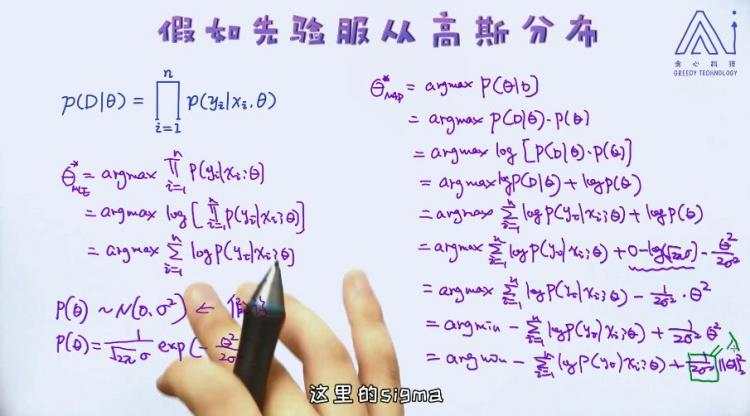 假如先验服从高斯分布
贪心科技
GREEDY TECHNOLOGY
p(D|θ) = ∏ᵢ₌₁ⁿ p(yᵢ|xᵢ,θ)
θ*MLE = argmax ∏ᵢ₌₁ⁿ P(yᵢ|xᵢ;θ)
= argmax log[∏ᵢ₌₁ⁿ P(yᵢ|xᵢ;θ)]
= argmax ∑ᵢ₌₁ⁿ log P(yᵢ|xᵢ;θ)
P(θ) ~ N(0, σ²) ←
P(θ) = 1/(√2π σ) exp(- θ²/2σ
θ*MAP = argmax P(θ|D)
= argmax P(D|θ)·P(θ)
= argmax log [P(D|θ)·P(θ)]
= argmax log P(D|θ) + log P(θ)
= argmax ∑ᵢ₌₁ⁿ log P(yᵢ|xᵢ;θ) + log P(θ)
= argmax ∑ᵢ₌₁ⁿ log P(yᵢ|xᵢ;θ) + 0 - log(√2π σ) - θ²/2σ²
= argmax ∑ᵢ₌₁ⁿ log P(yᵢ|xᵢ;θ) - 1/2σ² · θ²
= argmin - ∑ᵢ₌₁ⁿ log P(yᵢ|xᵢ;θ) + 1/2σ² θ²
λ
= argmin - ∑ᵢ₌₁ⁿ log P(yᵢ|xᵢ;θ) + 1/2σ² ||θ||₂²
这里的sigma